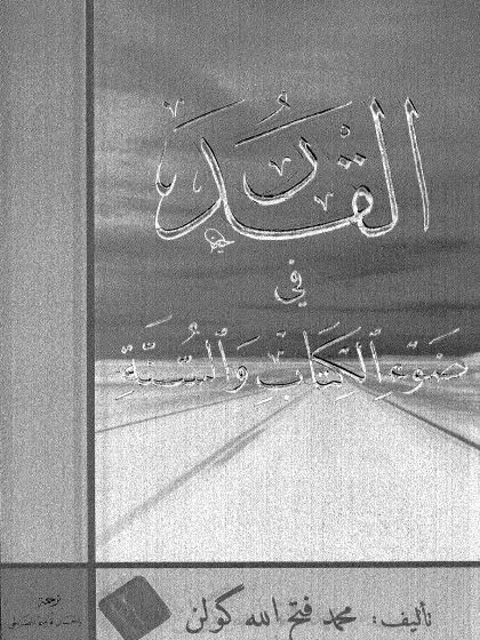 القَدَر
في
ضَوْءِ ٱلْكِتَابِ وَٱلسُّنَّةِ
تأليف: محمد فتح الله كولن
ترجمة